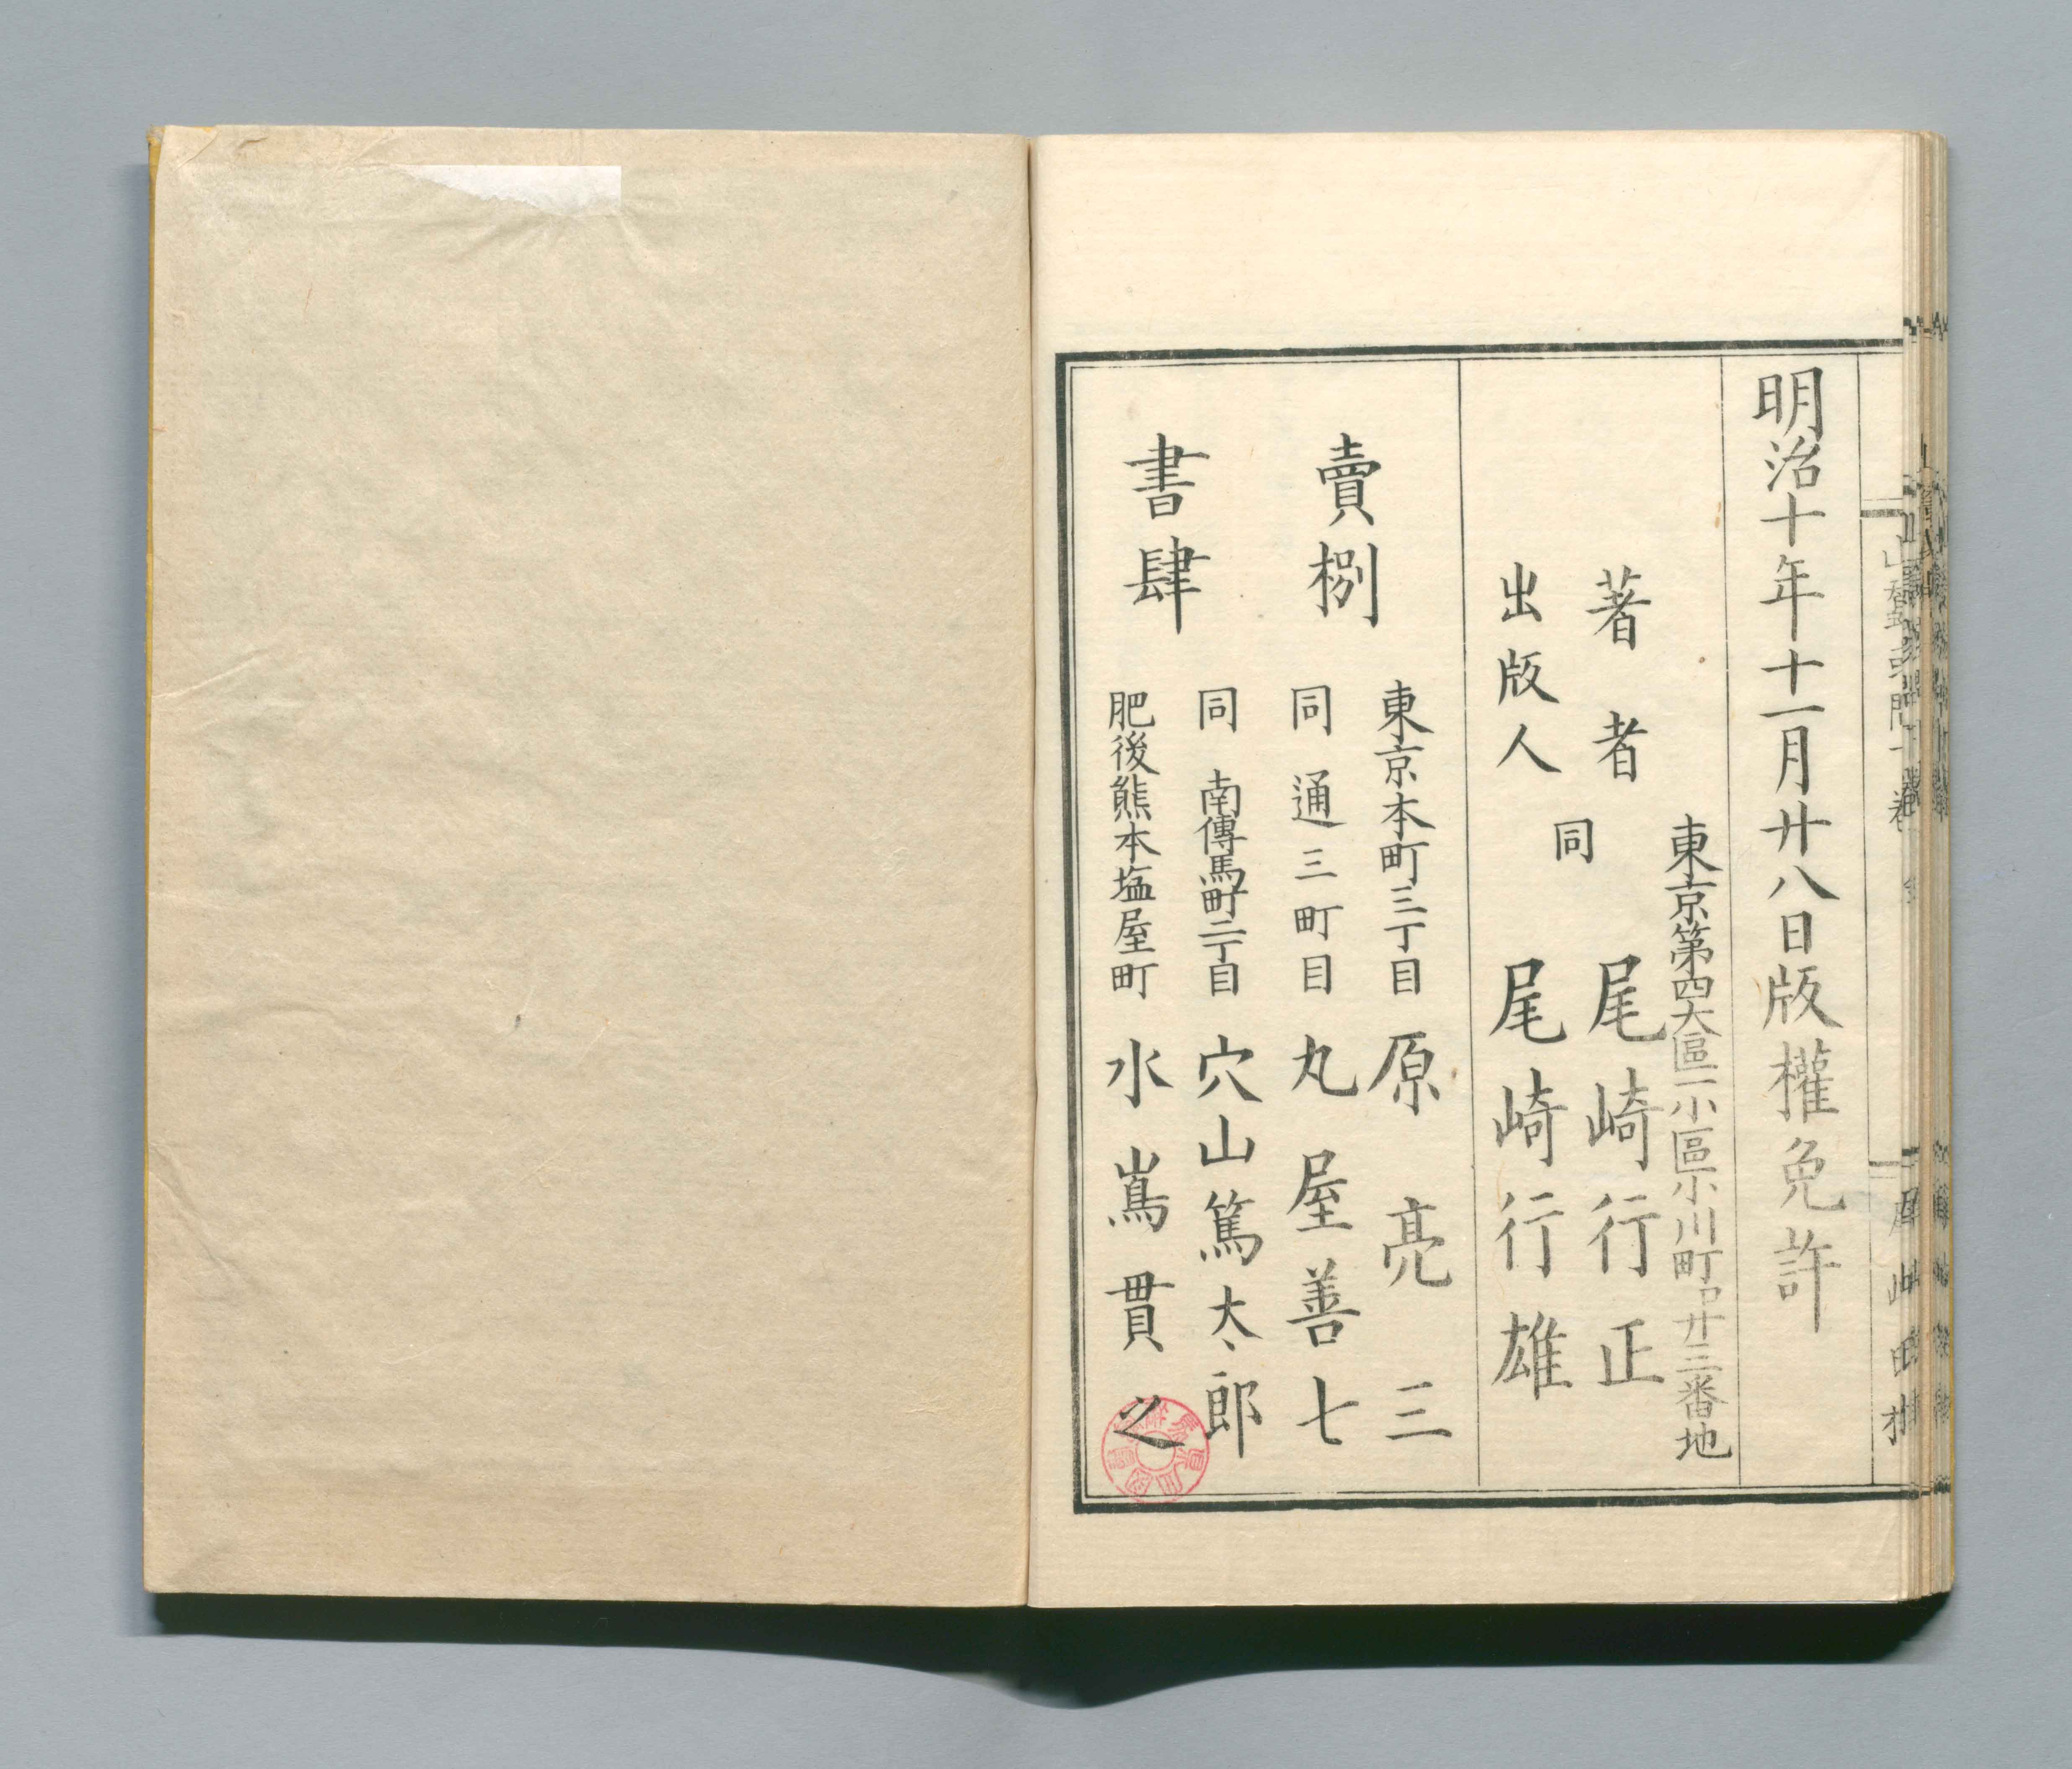 明治十年十一月廿八日版權免許
東京第四大區一小區小川町廿三番地
著者 尾崎行正
同
出版人 尾崎行雄
賣捌
書肆
東京本町三丁目 原亮三
同通三町目 丸屋善七
同南傳馬町二丁目 穴山篤太郎
肥後熊本塩屋町 水嶌貫之